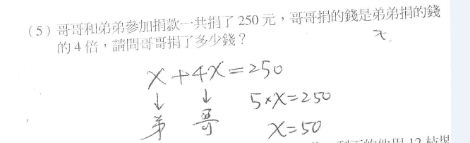 （5）哥哥和弟弟參加捐款一共捐了 250 元，哥哥捐的錢是弟弟捐的錢
x
的 4 倍，請問哥哥捐了多少錢？
x+4x=250
↓ ↓ 5×x=250
弟 哥 x=50